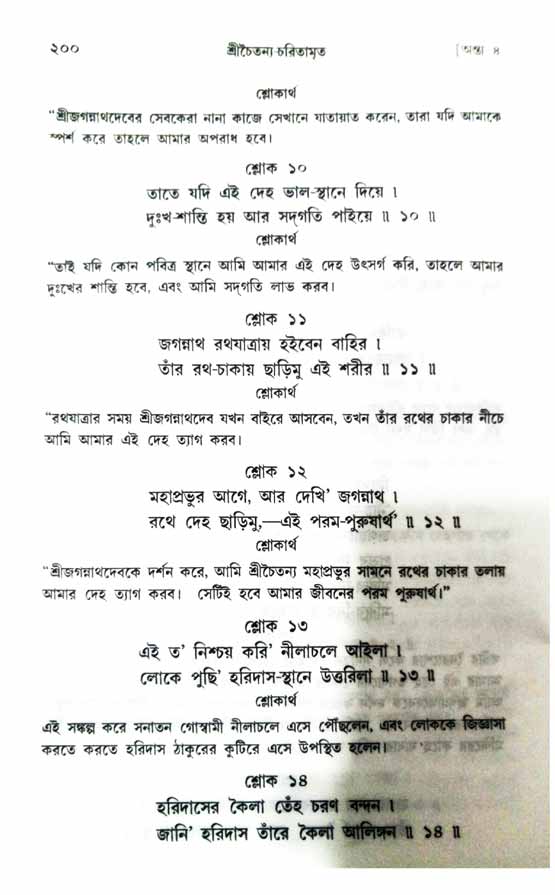 ২০০ শ্রীচৈতন্য-চরিতামৃত [অন্ত্য ৪
শ্লোকার্থ
“শ্রীজগন্নাথদেবের সেবকেরা নানা কাজে সেখানে যাতায়াত করেন, তারা যদি আমাকে
স্পর্শ করে তাহলে আমার অপরাধ হবে।
শ্লোক ১০
তাতে যদি এই দেহ ভাল-স্থানে দিয়ে ।
দুঃখ-শান্তি হয় আর সদ্‌গতি পাইয়ে ॥ ১০ ॥
শ্লোকার্থ
“তাই যদি কোন পবিত্র স্থানে আমি আমার এই দেহ উৎসর্গ করি, তাহলে আমার
দুঃখের শান্তি হবে, এবং আমি সদ্‌গতি লাভ করব।
শ্লোক ১১
জগন্নাথ রথযাত্রায় হইবেন বাহির ।
তাঁর রথ-চাকায় ছাড়িমু এই শরীর ॥ ১১ ॥
শ্লোকার্থ
“রথযাত্রার সময় শ্রীজগন্নাথদেব যখন বাইরে আসবেন, তখন তাঁর রথের চাকার নীচে
আমি আমার এই দেহ ত্যাগ করব।
শ্লোক ১২
মহাপ্রভুর আগে, আর দেখি' জগন্নাথ ।
রথে দেহ ছাড়িমু,—এই পরম-পুরুষার্থ' ॥ ১২ ॥
শ্লোকার্থ
“শ্রীজগন্নাথদেবকে দর্শন করে, আমি শ্রীচৈতন্য মহাপ্রভুর সামনে রথের চাকার তলায়
আমার দেহ ত্যাগ করব। সেটিই হবে আমার জীবনের পরম পুরুষার্থ।”
শ্লোক ১৩
এই ত' নিশ্চয় করি' নীলাচলে আইলা ।
লোকে পুছি' হরিদাস-স্থানে উত্তরিলা ॥ ১৩ ॥
শ্লোকার্থ
এই সঙ্কল্প করে সনাতন গোস্বামী নীলাচলে এসে পৌঁছলেন, এবং লোককে জিজ্ঞাসা
করতে করতে হরিদাস ঠাকুরের কুটিরে এসে উপস্থিত হলেন।
শ্লোক ১৪
হরিদাসের কৈলা তেঁহ চরণ বন্দন ।
জানি' হরিদাস তাঁরে কৈলা আলিঙ্গন ॥ ১৪ ॥